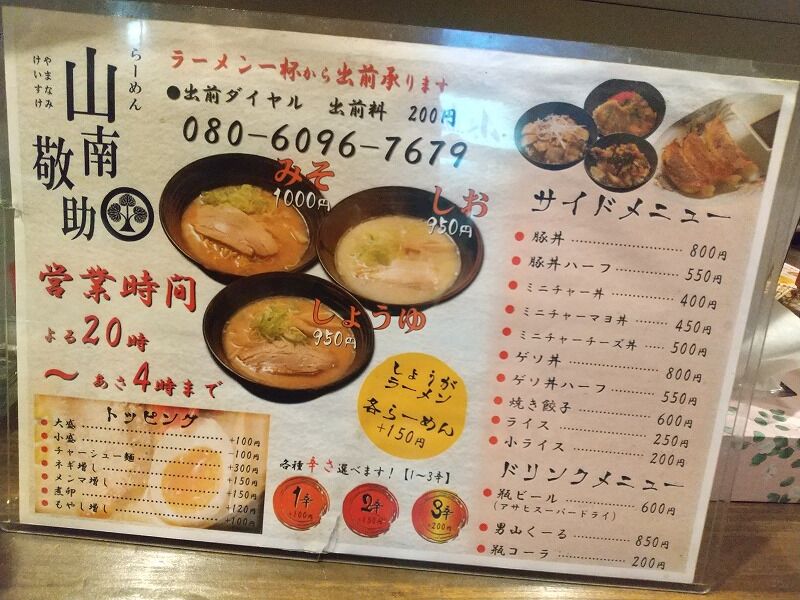 らーめん
山南敬助
やまなみ
けいすけ
ラーメン一杯から出前承ります
●出前ダイヤル 出前料 200円
080-6096-7679
みそ
1000円
しお
950円
しょうゆ
950円
営業時間
よる20時
～ あさ4時まで
しょうが
ラーメン
各らーめん
+150円
トッピング
大盛 +100円
小盛 -100円
チャーシュー麺 +300円
ネギ増し +150円
メンマ増し +150円
煮卵 +120円
もやし増し +100円
各種辛さ選べます！【1～3辛】
1辛
+100円
2辛
+150円
3辛
+200円
サイドメニュー
豚丼 800円
豚丼ハーフ 550円
ミニチャー丼 400円
ミニチャーマヨ丼 450円
ミニチャーチーズ丼 500円
ゲソ丼 800円
ゲソ丼ハーフ 550円
焼き餃子 600円
ライス 250円
小ライス 200円
ドリンクメニュー
瓶ビール 600円
（アサヒスーパードライ）
男山くーる 850円
瓶コーラ 200円